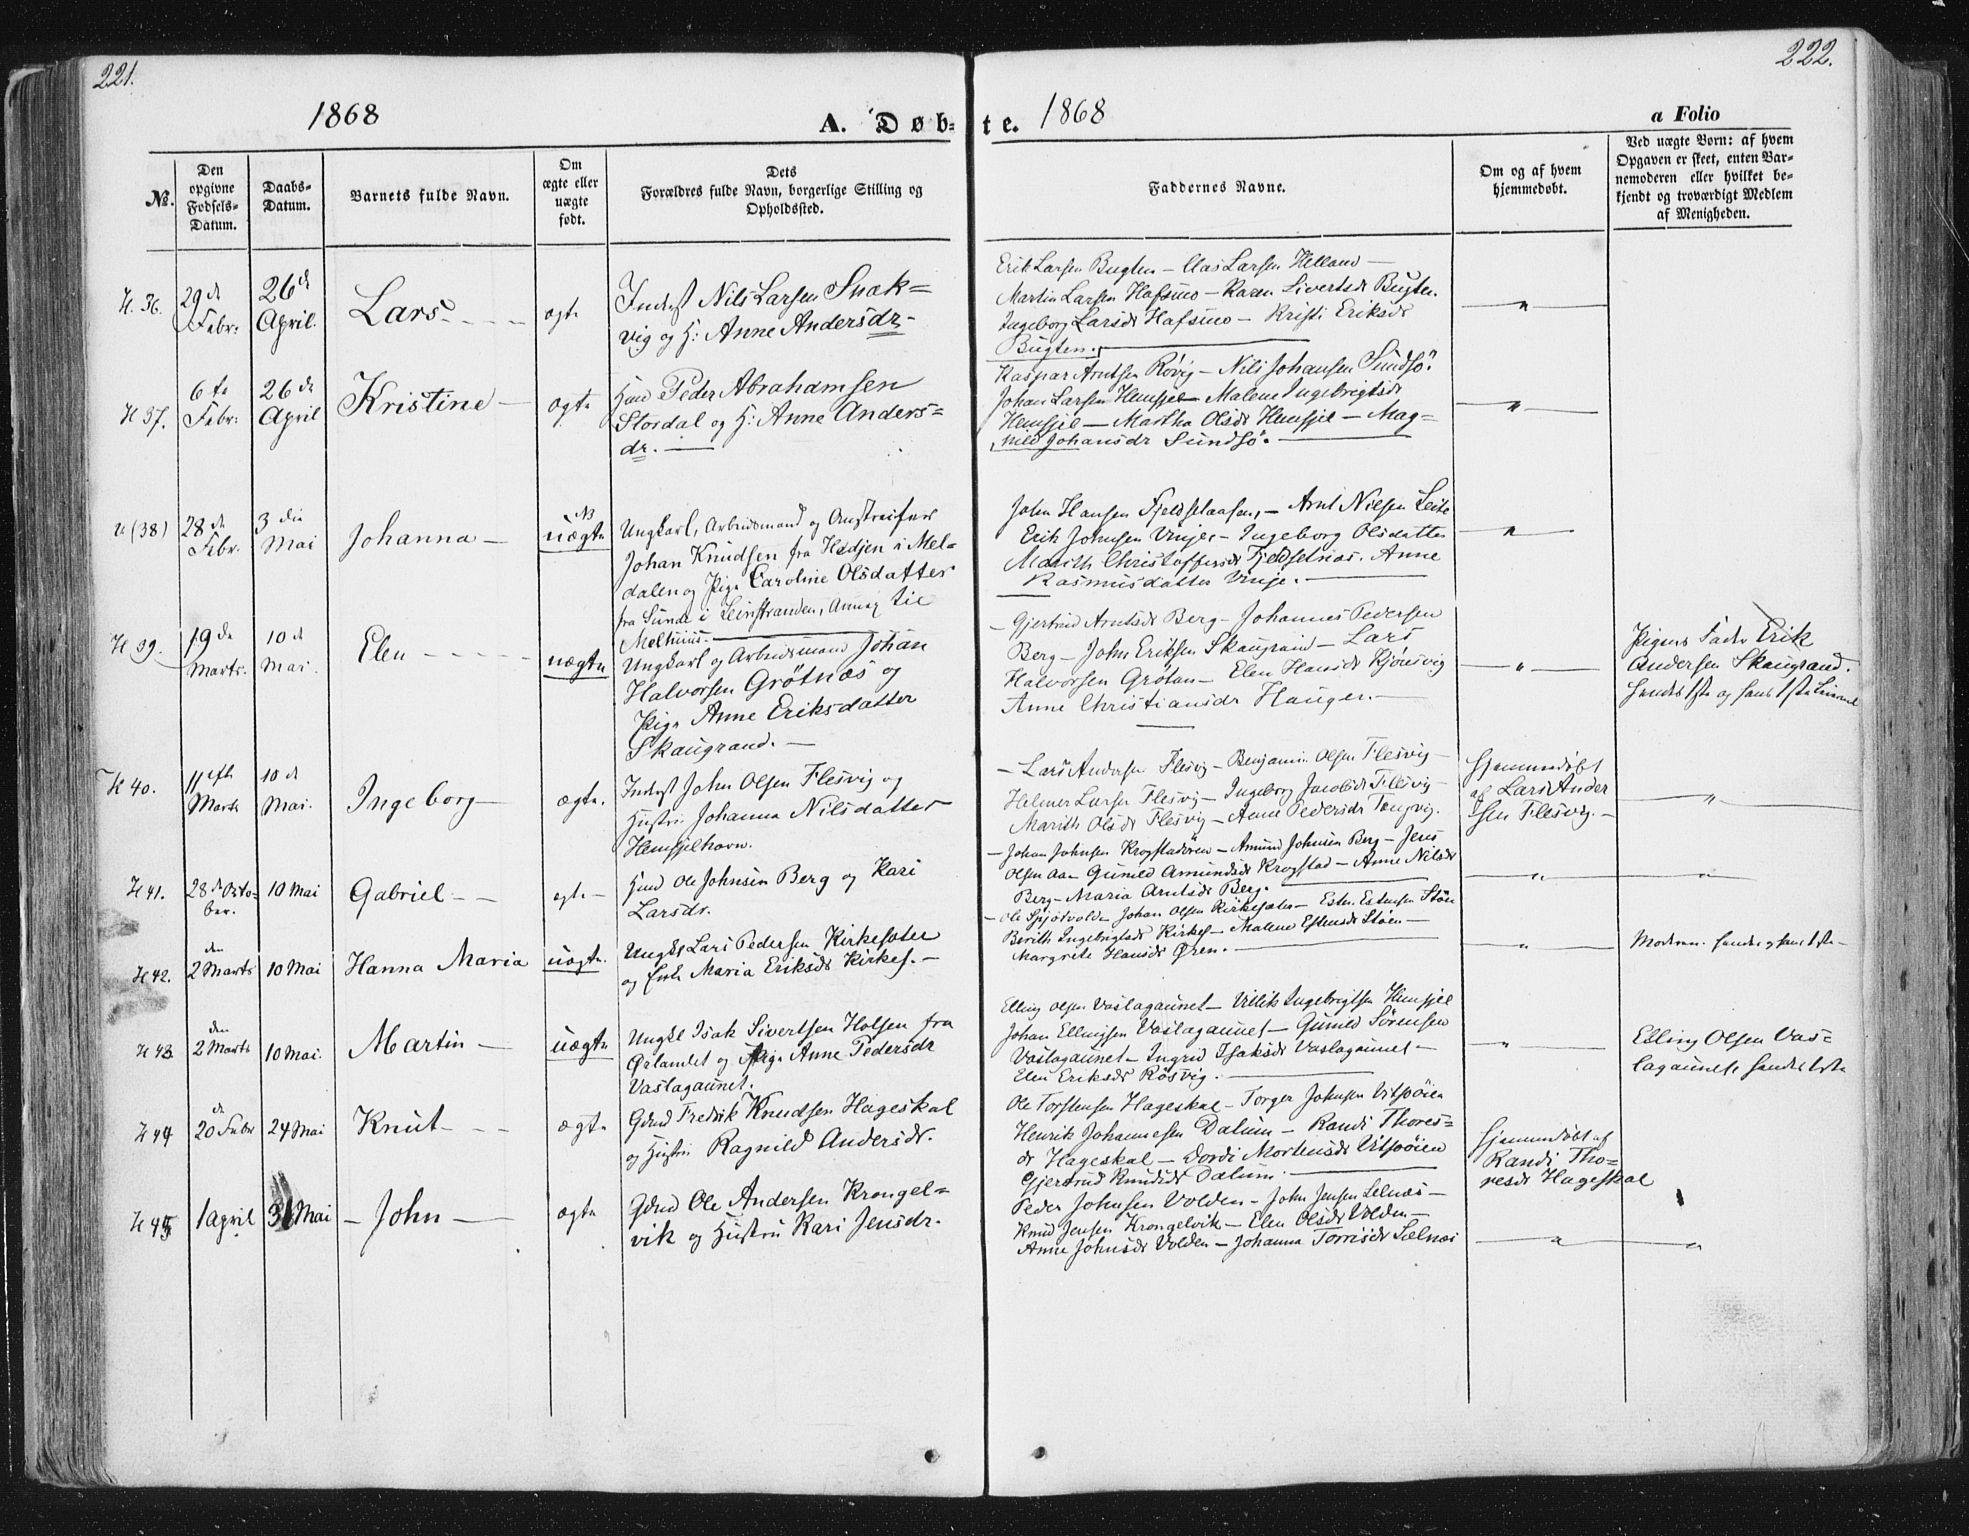 221.
222.
1868
A. Døb-
te.
1868
a Folio
No.
Den opgivne Fødsels-Datum.
Daabs-Datum.
Barnets fulde Navn.
Om ægte eller uægte født.
Dets Forældres fulde Navn, borgerlige Stilling og Opholdssted.
Faddernes Navne.
Om og af hvem hjemmedøbt.
Ved uægte Børn: af hvem Opgaven er skeet, enten Barnemoderen eller hvilket bekjendt og troværdigt Medlem af Menigheden.
H. 36.
29de Febr:
26de April.
Lars
ægte
Inderst Nils Larsen Snak=
vig og H: Anne Andersdr
Erik Larsen Bugten – Clas Larsen Helland –
Martin Larsen Hafsmo – Karen Sivertsdr Bugten.
Ingeborg Larsdr Hafsmo – Kristi Eriksdr
Bugten.
"
H 37.
6te Febr:
26de April
Kristine
ægte
Hmd Peder Abrahamsen
Stordal og H: Anne Anders=
dr.
Kaspar Arntsen Røvig – Nils Johansen Sundsö.
Johan Larsen Hemsjel – Malene Ingebrigtsdr
Hemsjel – Martha Olsdr Hemsjel – Mag=
nild Johansdr Sundsö.
"
(38)
28de Febr.
3die Mai
Johanna
NB
uægte
Ungkarl, Arbeidsmand og
Johan Knudsen fra i Mel=
dalen og Pige Caroline Olsdatter
fra Sunde i Leinstranden,
Ungkarl og Arbeidsmand Johan
Halvorsen Grötnæs og
Pige Anne Eriksdatter
Skaugrand.
John Hansen – Arnt Nilsen
Erik Johnsen Vinje – Ingeborg Olsdatter
Marith Christoffersdr Fjeldsetnæs. Anne
Rasmusdatter Vinje.
"
H 39.
19de Marts.
10de Mai.
Elen
uægte
Gjertrud Arntsdr Berg – Johannes Pedersen
Berg – John Eriksen Skaugrand – Lars
Halvorsen Grøtan – Elen Hansdr Kjönsvig
Anne Christiansdr Hauger.
"
Pigens Fader Erik
Andersen Skaugrand.
hendes 1ste og hans 1ste
H 40.
11efte Marts
10de Mai.
Ingeborg
ægte.
Inderst John Olsen Flesvig og
Hustru Johanna Nilsdatter
Hemsjelhavn.
Lars Andersen Flesvig – Benjamin Olsen Flesvig
Helmer Larsen Flesvig – Ingeborg Jacobsdr Flesvig
Marith Olsdr Flesvig – Anne Pedersdr Tangvig.
Hjemmedøbt
af Lars Ander
sen Flesvig.
"
H 41.
28de Octo-
ber.
10 Mai
Gabriel
ægte
Hmd Ole Johnsen Berg og Kari
Larsdr.
Johan Johnsen Krogstadøren – Amund Johnsen Berg – Jens
Olsen Aae Gunild Amundsdr Krogstad – Anne Nilsdr
Berg – Maria Arntsdr Berg.
"
"
H 42.
den 2 Marts
10 Mai
Hanna Maria
uægte.
Ungkl Lars Pedersen Kirkesæter
og Enke Maria Eriksdr Kirkes.
Ole Spjøtvolde Johan Olsen Kirkesæter – Esten Estensen Stöen
Berith Ingebrigtsdr Kirkes – Malene Estensdr Stöen
Margrete Hansdr Øren.
"
Moderen. hendes og hans 1ste
H 43
den 2 Marts
10 Mai.
Martin
uægte
Ungkl Isak Sivertsen Holsen fra
Ørlandet og Pige Anne Pedersdr
Vaslagaunet.
Elling Olsen Vaslagaunet – Villik Ingebrigtsen Hemsjel
Johan Ellingsen Vaslagaunet – Gunild Sørensen
Vaslagaunet – Ingrid Isaksdr Vaslagaunet –
Elen Eriksdr Røsvig.
"
Elling Olsen Vas=
lagaunet. hendes 1ste
H 44
de 20 Febr
24 Mai
Knut
ægte
Gdmd Fredrik Knudsen Hageskal
og Hustru Ragnild Andersdr.
Ole Torstensen Hageskal – Torger Johnsen Vitsøien
Henrik Johannesen Dalum – Randi Thores=
dr Hageskal – Dordi Mortensdr Vitsøien
Gjertrud Knudsdr Dalum.
Hjemmedøbt af
Randi Tho=
resdr Hageskal
H 45
1 April
31 Mai
John
ægte
Gdmd Ole Andersen Krongel=
vik og Hustru Kari Jensdr.
Peder Johnsen Volden – John Jensen Selnæs –
Knud Jensen Krongelvik – Elen Olsdr Volden –
Anne Johnsdr Volden – Johanna Torrisdr Selnæs
"
"